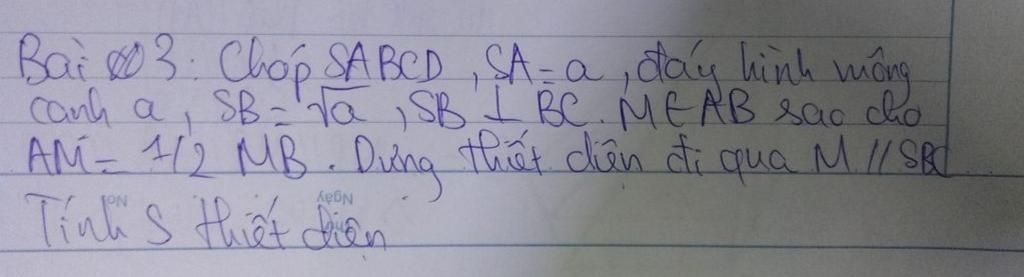 Bài 3: Chóp SABCD, SA = a, đáy hình vuông
canh a, SB = √a, SB ⊥ BC. M ∈ AB sao cho
AM = 1/2 MB. Dưng thiết diên đi qua M // SBC
Tính S thiết diên
No
Ngày